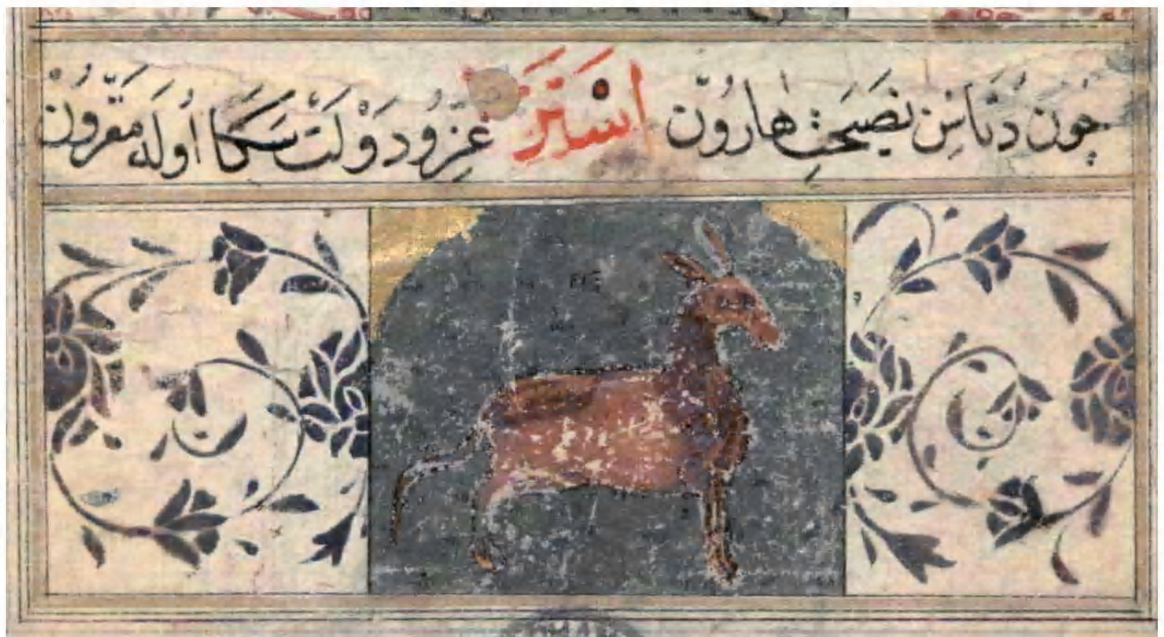 چون دُتَاسِن نَصِيحَتِ هَارُون اَسْتَرْ عِزُّو دَوْلَتْ سَكَا اُولَه مَقْرُونْ